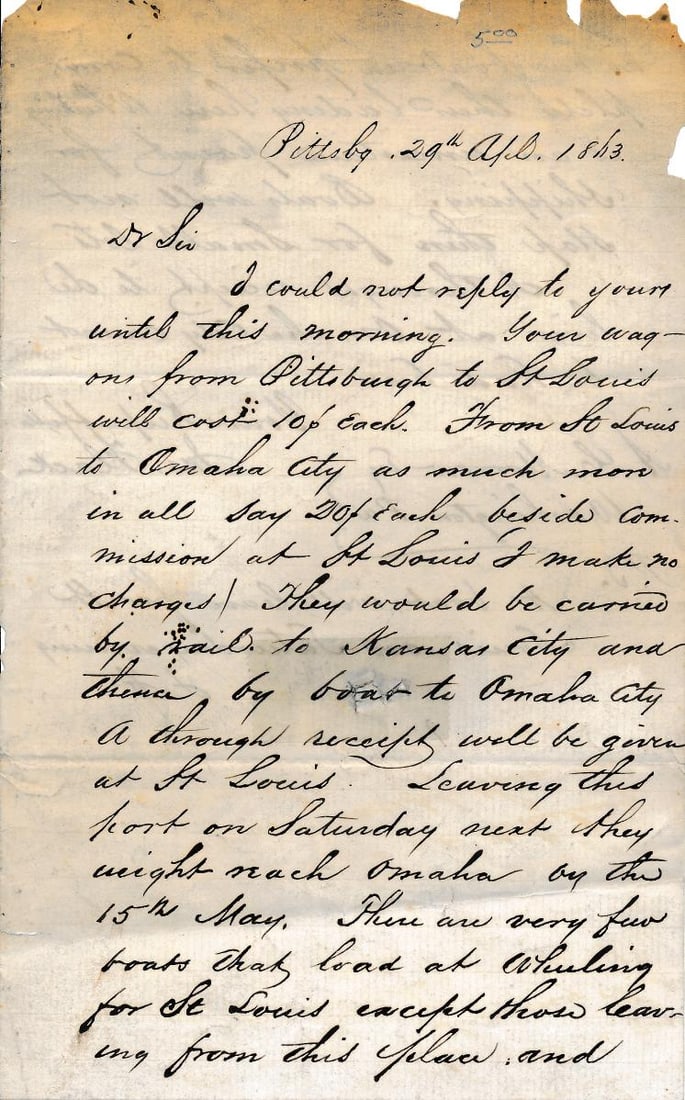 5.00
Pittsbg. 29th Apl. 1863.
Dr Sir
I could not reply to yours
until this morning. Your wag-
ons from Pittsburgh to St Louis
will cost 10$ Each. From St Louis
to Omaha City as much more
in all say 20$ Each beside com-
mission at St Louis I make no
charges/ They would be carried
by rail to Kansas City and
thence by boat to Omaha City
A through receipt will be given
at St Louis. Leaving this
port on Saturday next they
might reach Omaha by the
15th May. There are very few
boats that load at Wheeling
for St Louis except those leav-
ing from this place, and